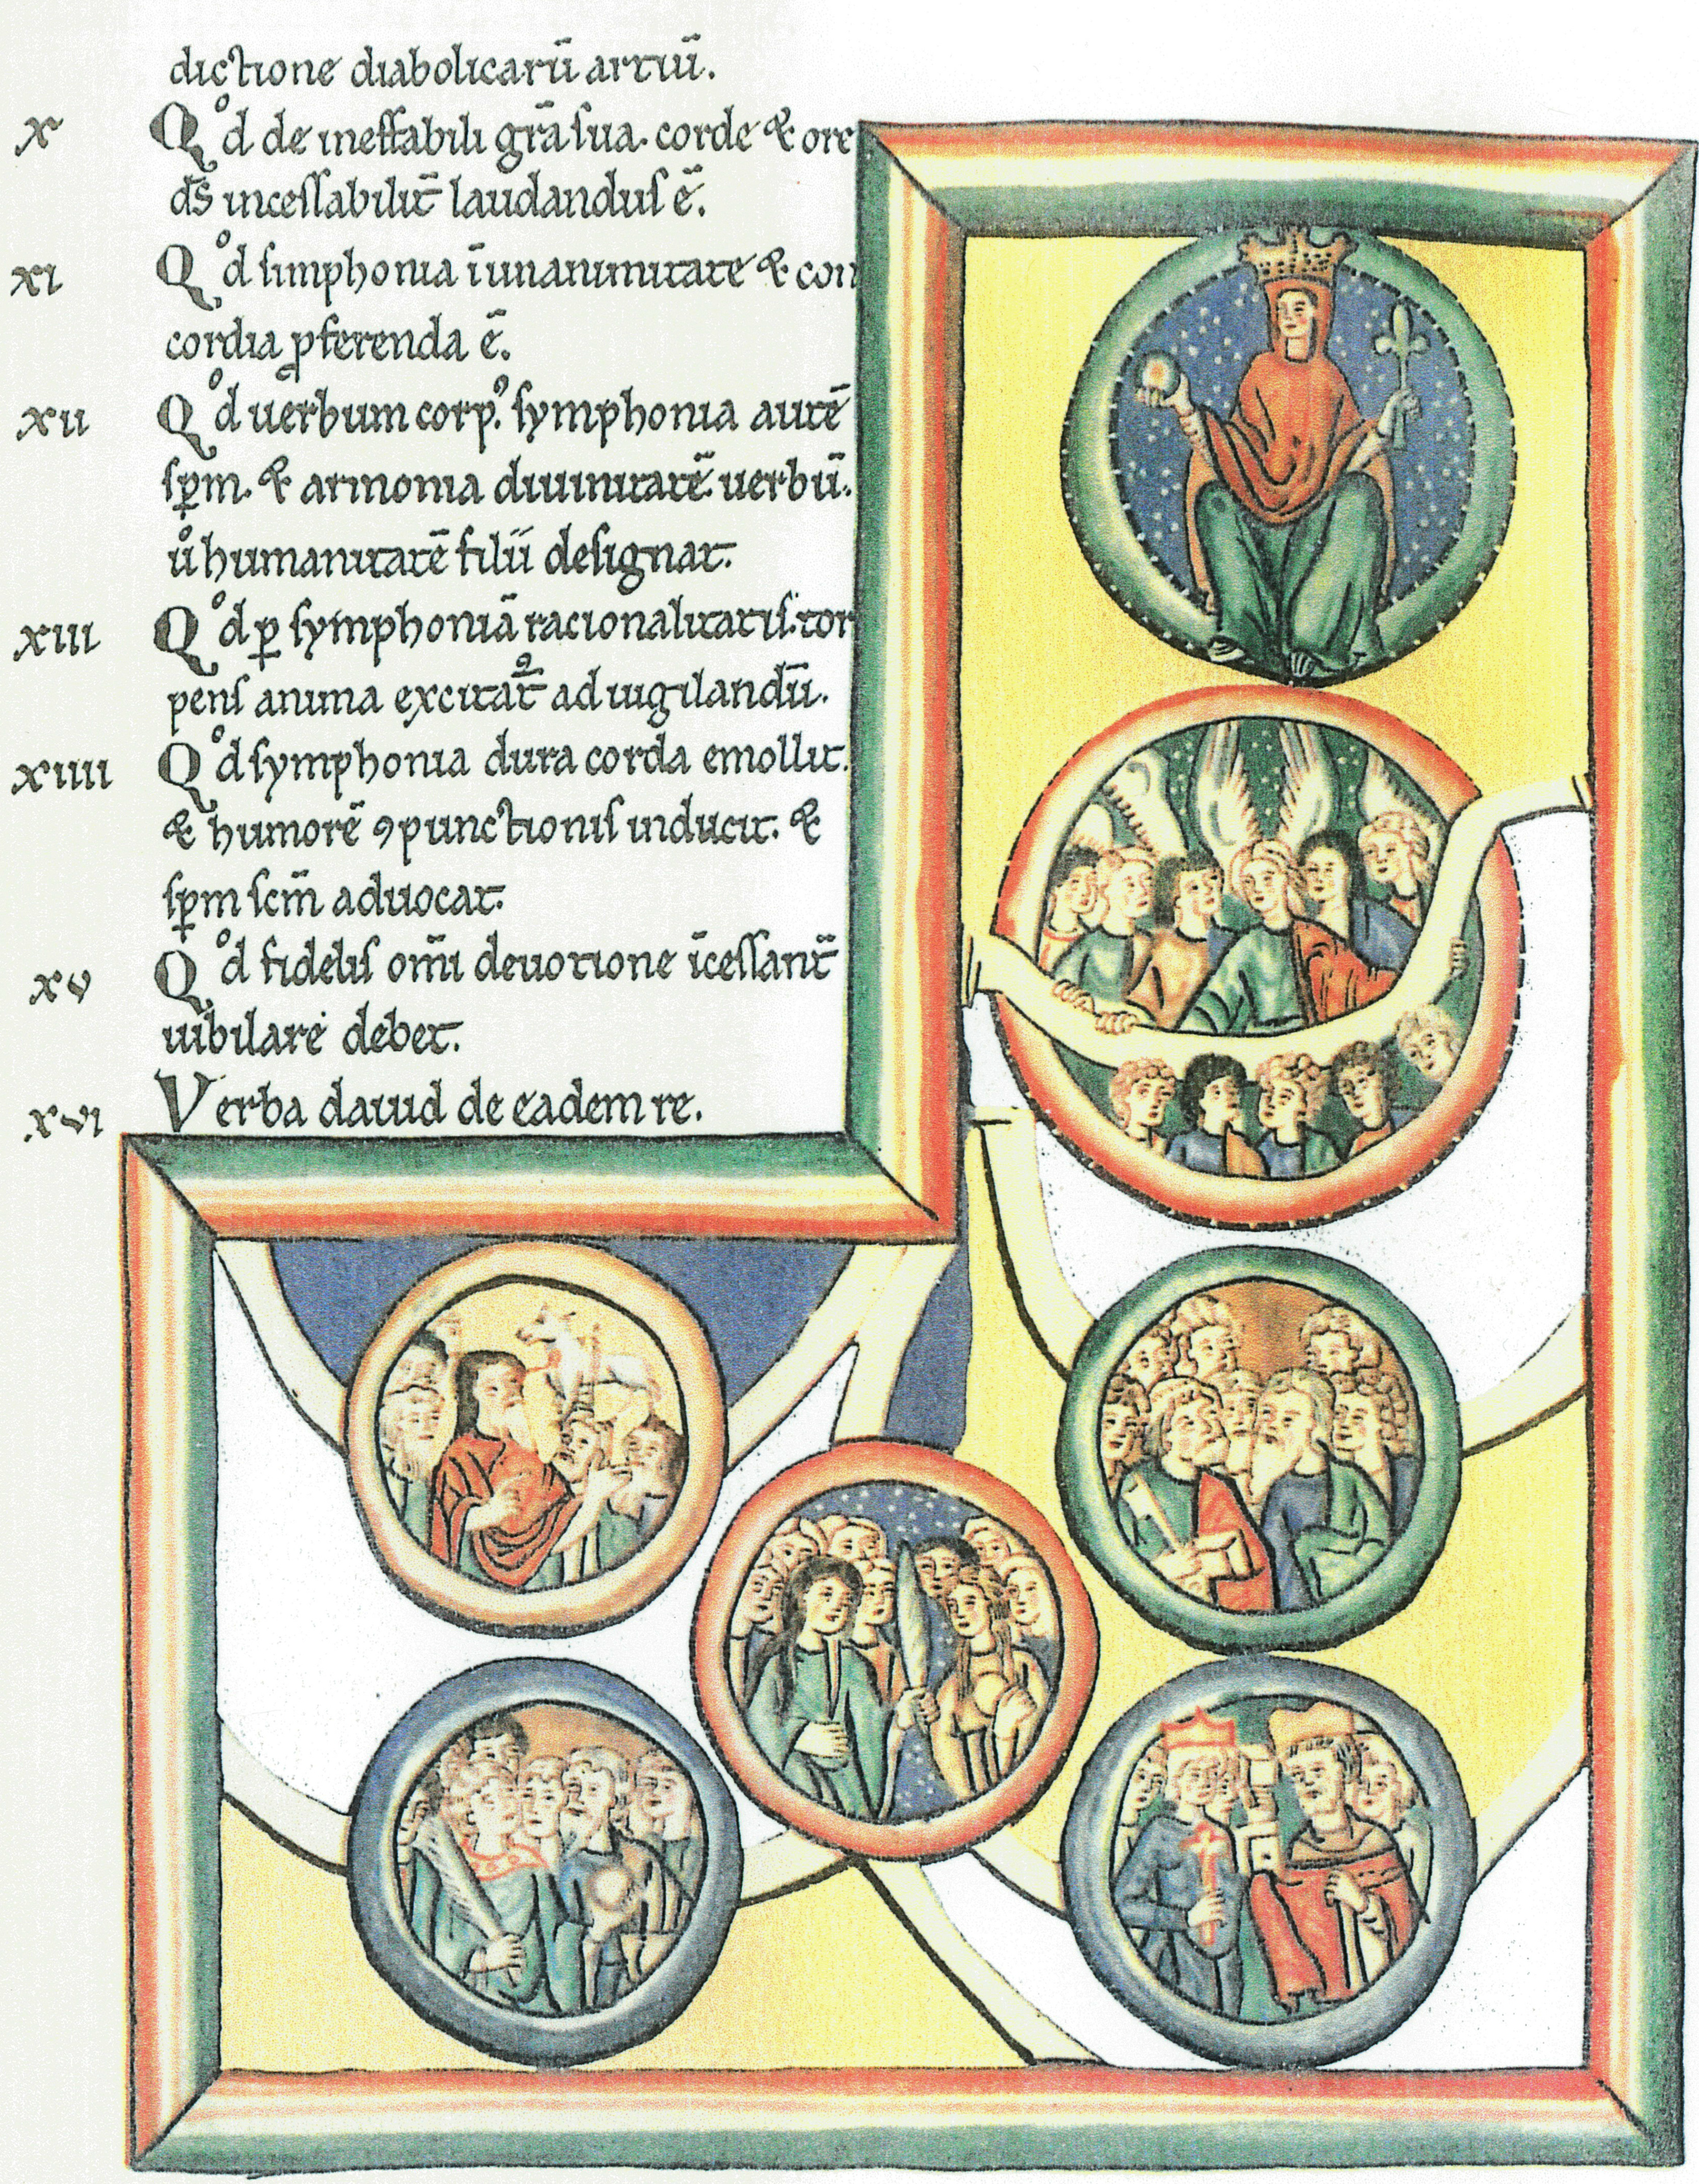 dictione diabolicarū artiū.
x Qͦd de ineffabili gr̄a sua. corde & ore
d̄s incessabilit̄ laudandus ē.
xi Qͦd simphonia ī unanimitate & con
cordia ꝓferenda ē.
xii Qͦd uerbum corp᷒. symphonia autē
sp̄m. & armonia diuinitatē. uerbū.
uͦ humanitatē filii designat.
xiii Qͦd ꝑ symphoniā racionalitatis. tor
pens anima excitat᷒ ad uigilandū.
xiiii Qͦd symphonia dura corda emollit.
& humorē ꝯpunctionis inducit. &
sp̄m sc̄m aduocat.
xv Qͦd fidelis om̄i deuotione īcessant̄
iubilare debet.
xvi Verba dauid de eadem re.